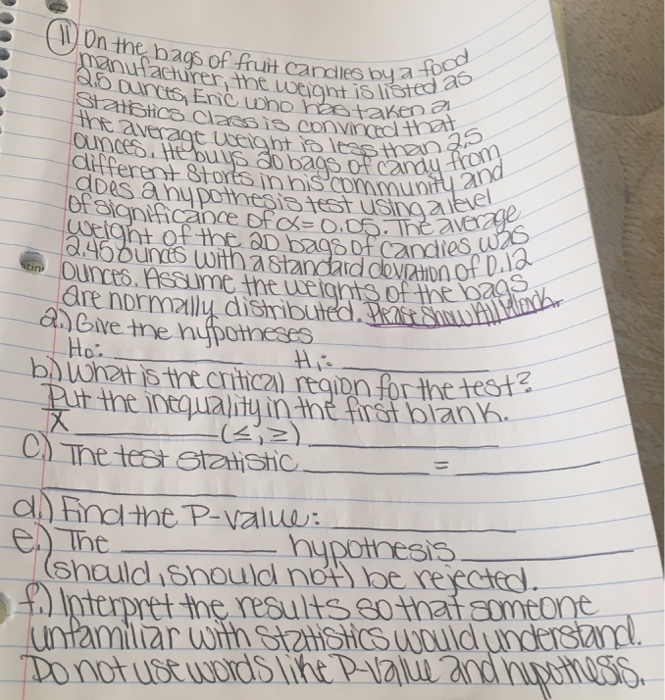 11 On the bags of fruit candies by a food
manufacturer, the weight is listed as
2.5 ounces, Eric who has taken a
statistics class is convinced that
the average weight is less than 2.5
ounces. He buys 20 bags of candy from
different stores in his community and
does a hypothesis test using a level
of significance of α = 0.05. The average
weight of the 20 bags of candies was
2.45 ounces with a standard deviation of 0.12
ounces. Assume the weights of the bags
are normally distributed. Please Show All Work.
a.) Give the hypotheses
H₀: ____________ H₁: ____________
b.) What is the critical region for the test?
Put the inequality in the first blank.
X̄ ____________ (≤, ≥) ____________
c.) The test statistic ____________ = ____________
____________
d.) Find the P-value: ____________
e.) The ____________ hypothesis ____________
(should, should not) be rejected.
f.) Interpret the results so that someone
unfamiliar with statistics would understand.
Do not use words like P-value and hypothesis.